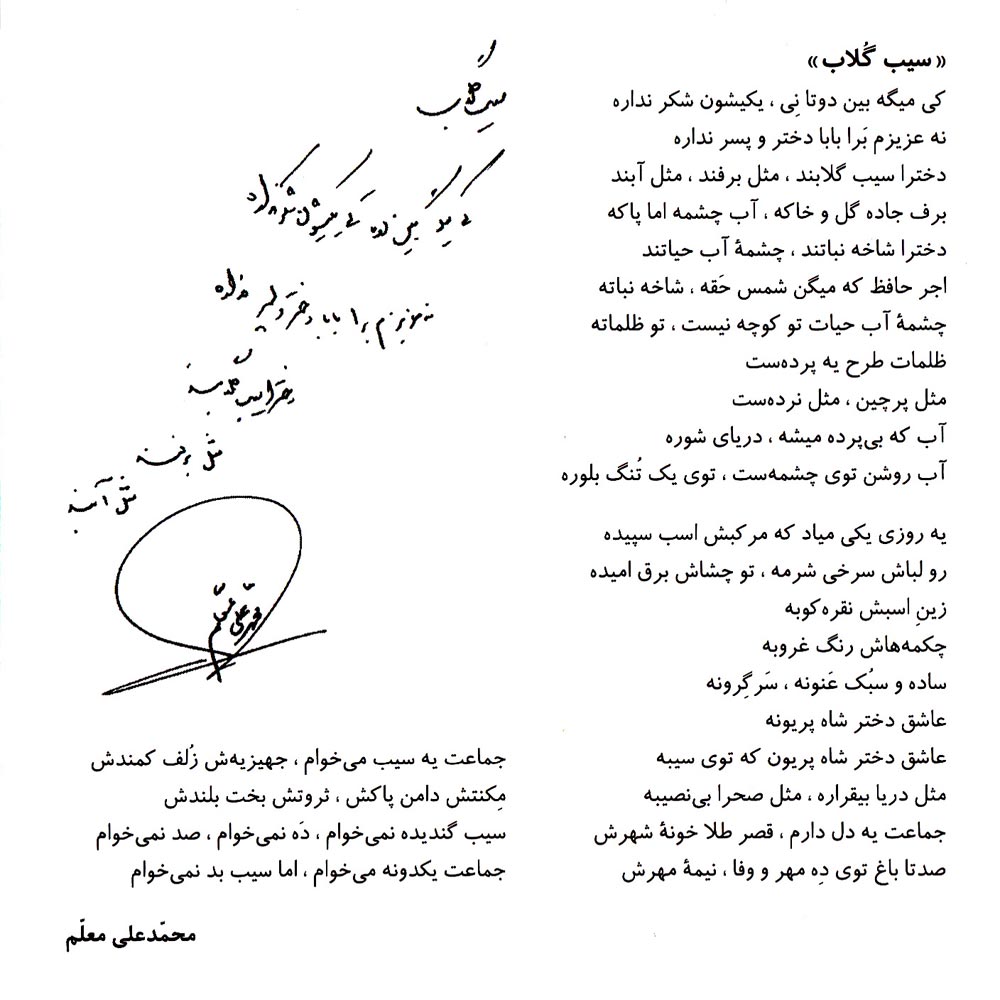 «سیب گُلاب»
کی میگه بین دوتا نِی ، یکیشون شکر نداره
نه عزیزم بَرا بابا دختر و پسر نداره
دخترا سیب گلابند ، مثل برفند ، مثل آبند
برف جاده گل و خاکه ، آب چشمه اما پاکه
دخترا شاخه نباتند ، چشمهٔ آب حیاتند
اجر حافظ که میگن شمس حَقه ، شاخه نباته
چشمهٔ آب حیات تو کوچه نیست ، تو ظلماته
ظلمات طرح یه پرده‌ست
مثل پرچین ، مثل نرده‌ست
آب که بی‌پرده میشه ، دریای شوره
آب روشن توی چشمه‌ست ، توی یک تُنگ بلوره
یه روزی یکی میاد که مرکبش اسب سپیده
رو لباش سرخی شرمه ، تو چشاش برق امیده
زینِ اسبش نقره‌کوبه
چکمه‌هاش رنگ غروبه
ساده و سبُک عَنونه ، سَر گِرونه
عاشق دختر شاه پریونه
عاشق دختر شاه پریون که توی سیبه
مثل دریا بیقراره ، مثل صحرا بی‌نصیبه
جماعت یه دل دارم ، قصر طلا خونهٔ شهرش
صدتا باغ توی دِه مهر و وفا ، نیمهٔ مهرش
سیب گلاب
کی میگه بین دوتا نی یکیشون شکر نداره
نه عزیزم برا بابا دختر و پسر نداره
دخترا سیب گلابند
مثل برفند
مثل آبند
محمدعلی معلم
جماعت یه سیب می‌خوام ، جهیزیه‌ش زُلف کمندش
مِکنتش دامن پاکش ، ثروتش بخت بلندش
سیب گندیده نمی‌خوام ، دَه نمی‌خوام ، صد نمی‌خوام
جماعت یکدونه می‌خوام ، اما سیب بد نمی‌خوام
محمّدعلی معلّم